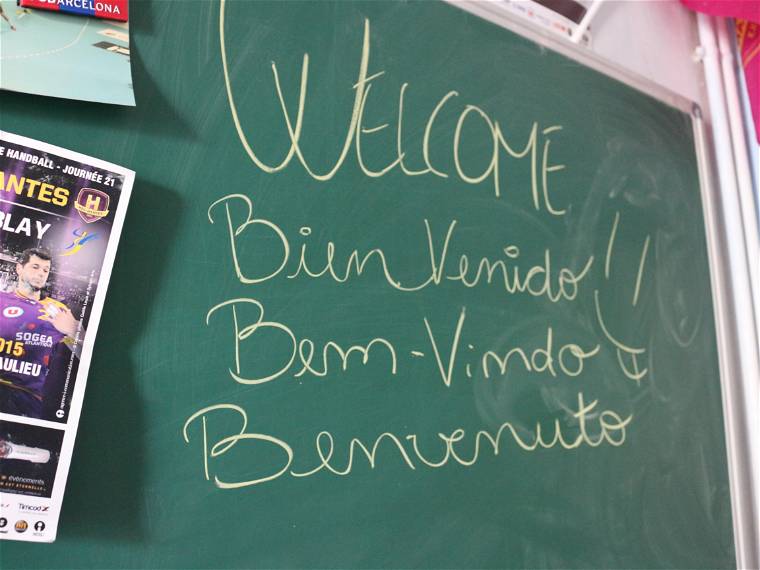 BARCELONA
WELCOME
Bien Venido !!
Bem-Vindo
Benvenuto
E HANDBALL - JOURNÉE 21
ANTES
H
BLAY
U
SOGEA
ATLANTIQUE
2015
AULIEU
évènements
Timcod